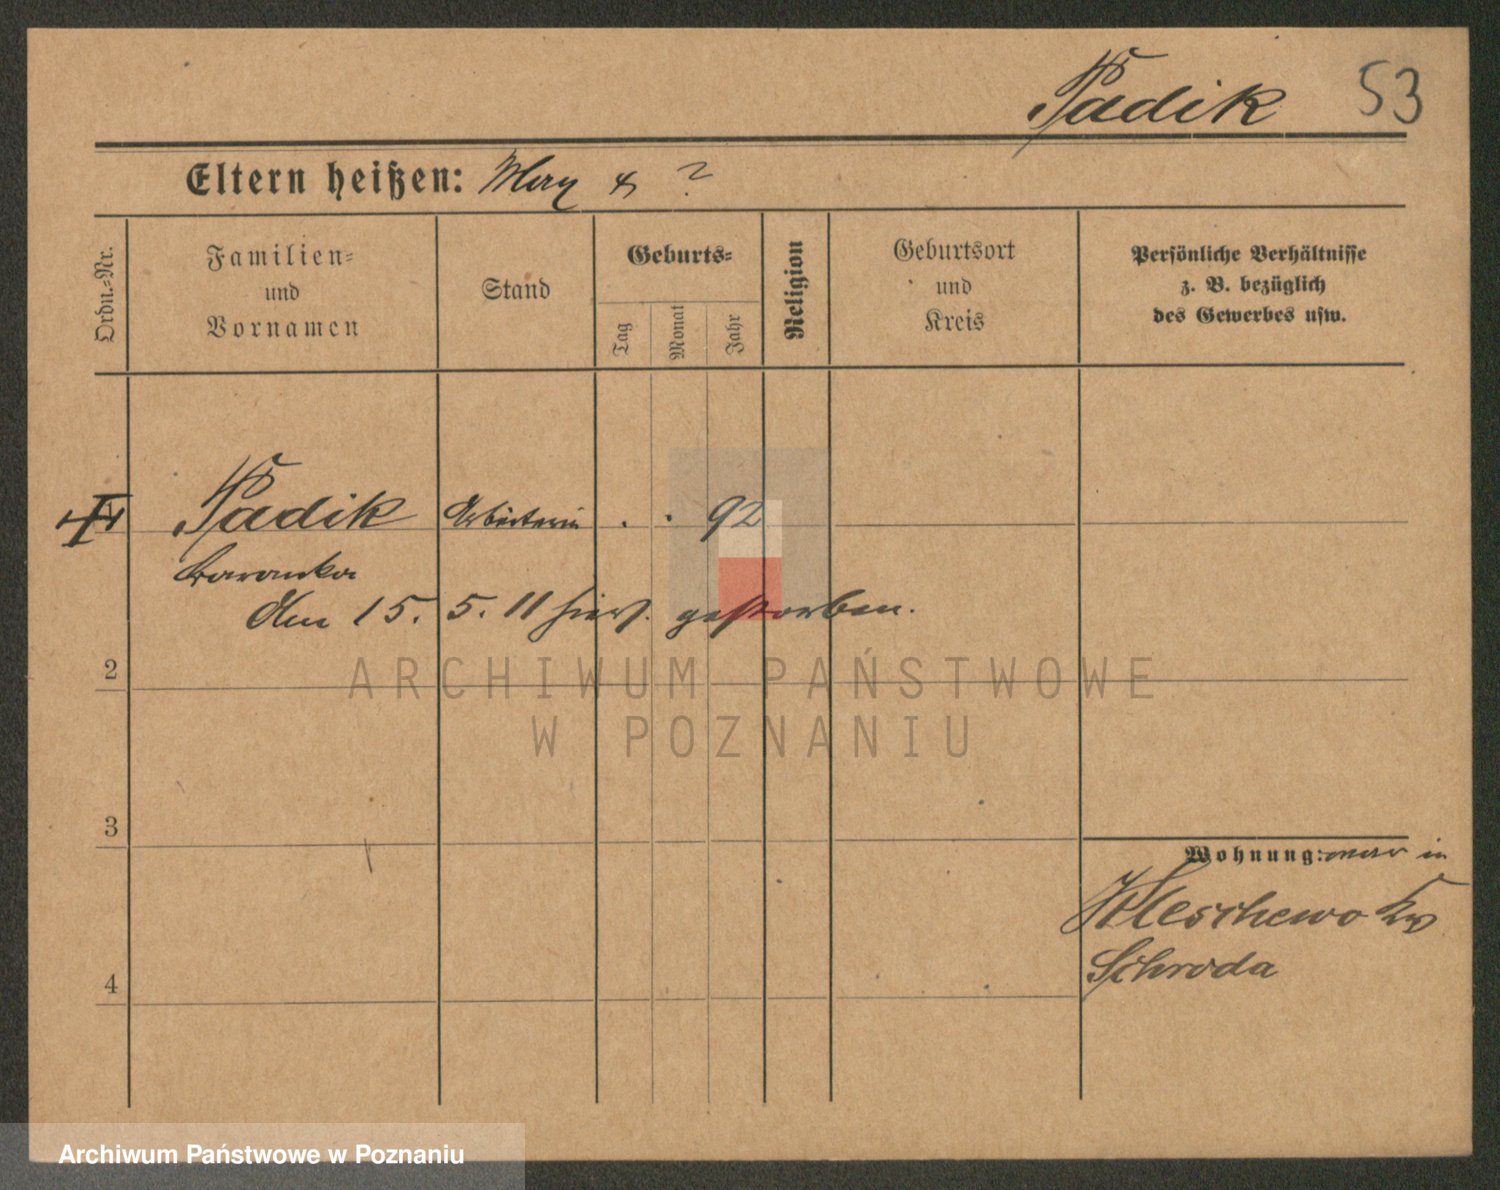 Padik 53
Eltern heißen: & ?
Ordn.-Nr.
Familien-
und
Vornamen
Stand
Geburts-
Tag
Monat
Jahr
Religion
Geburtsort
und
Kreis
Persönliche Verhältnisse
z. B. bezüglich
des Gewerbes usw.
Padik Arbeiterin . . 92
Den 15. 5. 11 hies. gestorben.
2
ARCHIWUM PAŃSTWOWE
W POZNANIU
3
Wohnung: in
Kleschewo Krs
Schroda
4
Archiwum Państwowe w Poznaniu